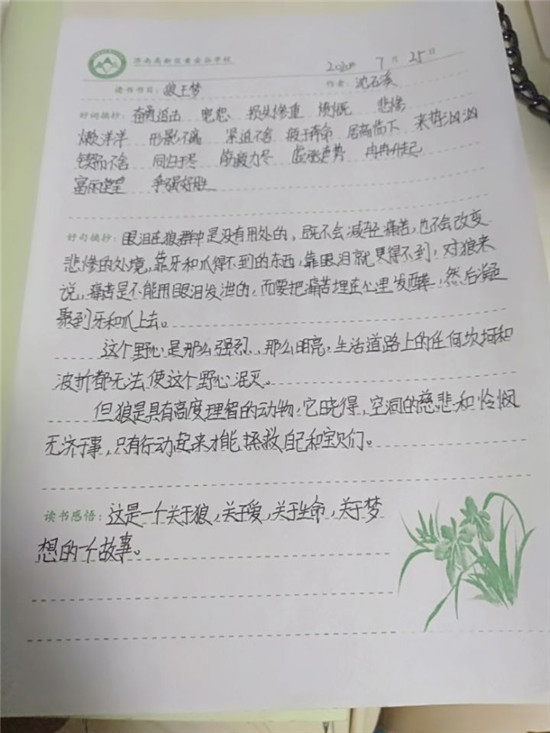 济南高新区黄金谷学校
2020年 7月 25日
读书书目: 狼王梦 作者: 沈石溪
好词摘抄: 奋勇追击 损失惨重 愤慨 悲怆
懒洋洋 形影不离 紧追不舍 疲于奔命 居高临下 来势汹汹
锲而不舍 同归于尽 精疲力尽 虚张声势 冉冉升起
富丽堂皇 争强好胜
好句摘抄: 眼泪在狼群中是没有用处的，既不会减轻痛苦，也不会改变
悲惨的处境，靠牙和爪得不到的东西，靠眼泪就更得不到！对狼来
说，痛苦是不能用眼泪发泄的，而要把痛苦埋在心里发酵，然后凝
聚到牙和爪上去。
这个野心是那么强烈、那么明亮，生活道路上的任何坎坷和
波折都无法使这个野心泯灭。
但狼是具有高度理智的动物，它晓得，空洞的慈悲和怜悯
无济于事，只有行动起来才能拯救自己和宝贝们。
读书感悟: 这是一个关于狼，关于爱，关于生命，关于梦
想的一个故事。